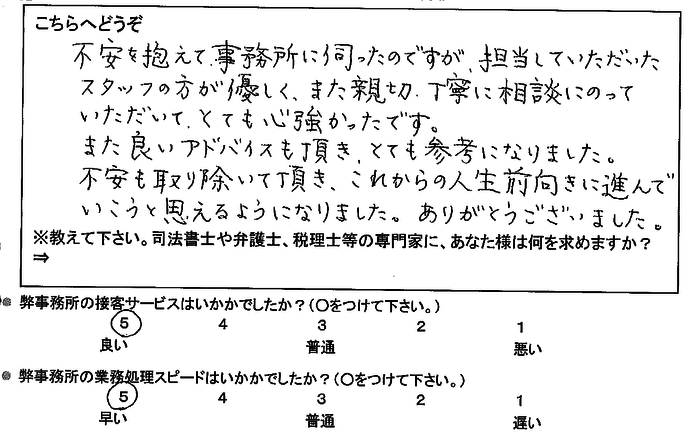 こちらへどうぞ
不安を抱えて、事務所に伺ったのですが、担当していただいた
スタッフの方が優しく、また親切、丁寧に相談にのって
いただいて、とても心強かったです。
また良いアドバイスも頂き、とても参考になりました。
不安も取り除いて頂き、これからの人生前向きに進んで
いこうと思えるようになりました。ありがとうございました。
※教えて下さい。司法書士や弁護士、税理士等の専門家に、あなた様は何を求めますか？
⇒
● 弊事務所の接客サービスはいかかでしたか？(〇をつけて下さい。)
5 4 3 2 1
良い 普通 悪い
● 弊事務所の業務処理スピードはいかかでしたか？(〇をつけて下さい。)
5 4 3 2 1
早い 普通 遅い